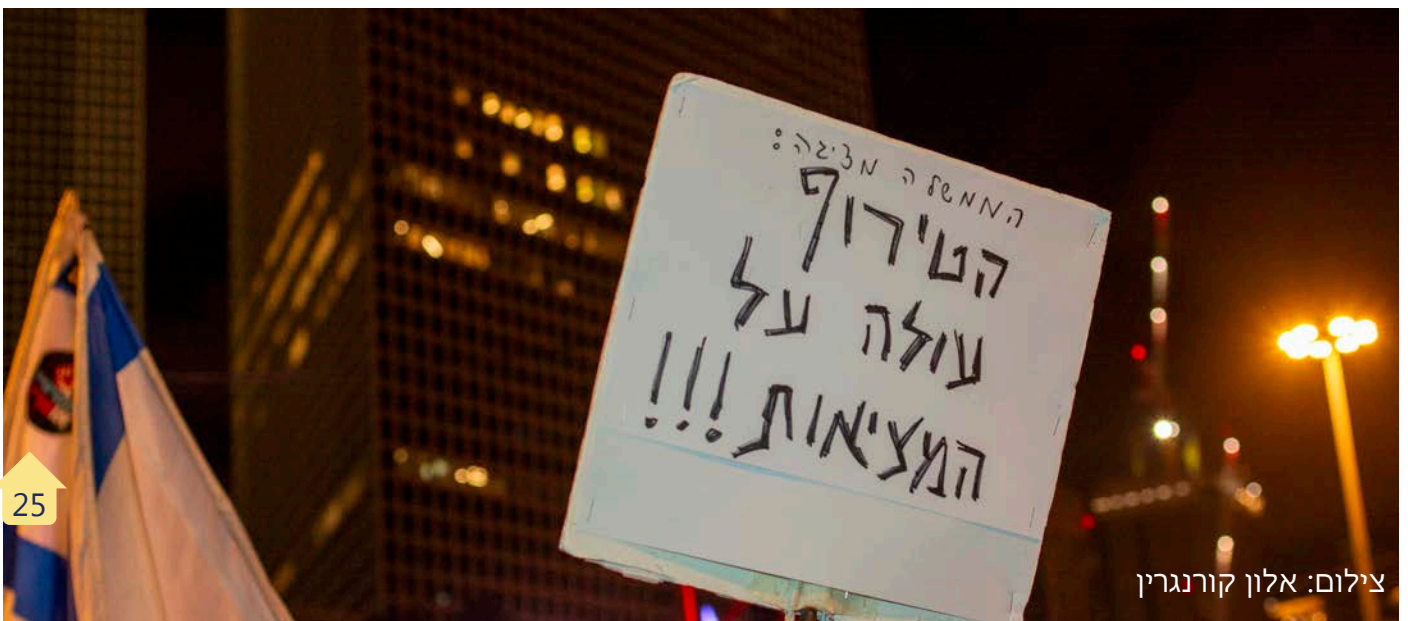 הממשלה מציגה:
הטירוף
עולה על
המציאות!!!
25
צילום: אלון קורנגרין